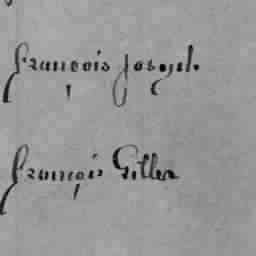 françois joseph
françois Gilles